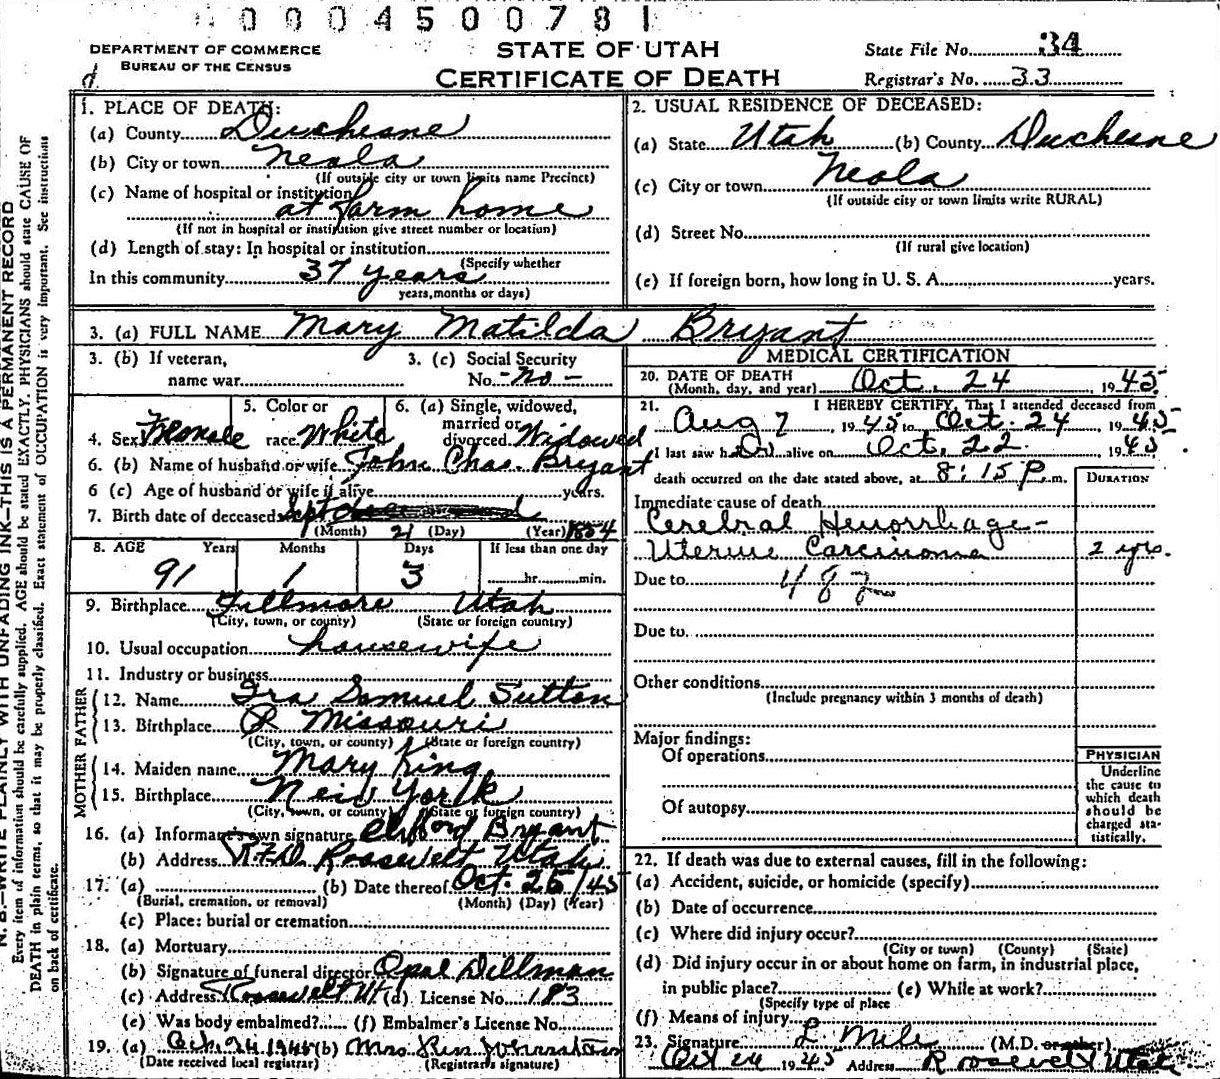 00004500781
DEPARTMENT OF COMMERCE
BUREAU OF THE CENSUS
STATE OF UTAH
CERTIFICATE OF DEATH
State File No. 34
Registrar's No. 33
d
1. PLACE OF DEATH:
(a) County Duchesne
(b) City or town Neola
(If outside city or town limits name Precinct)
(c) Name of hospital or institution
at farm home
(If not in hospital or institution give street number or location)
(d) Length of stay: In hospital or institution
(Specify whether
In this community 37 years
years, months or days)
2. USUAL RESIDENCE OF DECEASED:
(a) State Utah (b) County Duchesne
(c) City or town Neola
(If outside city or town limits write RURAL)
(d) Street No.
(If rural give location)
(e) If foreign born, how long in U. S. A. years.
3. (a) FULL NAME Mary Matilda Bryant
3. (b) If veteran,
name war
3. (c) Social Security
No. - no -
4. Sex Female
5. Color or
race White
6. (a) Single, widowed,
married or
divorced Widowed
6. (b) Name of husband or wife John Chas. Bryant
6 (c) Age of husband or wife if alive years.
7. Birth date of deceased Sept 21 1854
(Month) (Day) (Year)
8. AGE Years Months Days If less than one day
91 1 3 hr. min.
9. Birthplace Fillmore Utah
(City, town, or county) (State or foreign country)
10. Usual occupation housewife
11. Industry or business
FATHER
12. Name Ira Samuel Sutton
13. Birthplace Missouri
(City, town, or county) (State or foreign country)
MOTHER
14. Maiden name Mary King
15. Birthplace New York
(City, town, or county) (State or foreign country)
16. (a) Informant's own signature Clifford Bryant
(b) Address R.F.D. Roosevelt Utah
17. (a) (b) Date thereof Oct. 25/45
(Burial, cremation, or removal) (Month) (Day) (Year)
(c) Place: burial or cremation
18. (a) Mortuary
(b) Signature of funeral director Opal Dillman
(c) Address Roosevelt Ut (d) License No. 183
(e) Was body embalmed? (f) Embalmer's License No.
19. (a) Oct. 24 1945 (b) Mrs.
(Date received local registrar) (Registrar's signature)
MEDICAL CERTIFICATION
20. DATE OF DEATH
(Month, day, and year) Oct. 24, 1945
21. I HEREBY CERTIFY, That I attended deceased from
Aug 7, 1945 to Oct. 24, 1945
I last saw her alive on Oct. 22, 1945
death occurred on the date stated above, at 8:15 P. m.
DURATION
Immediate cause of death
Cerebral Hemorrhage -
Uterine Carcinoma 2 yrs.
Due to 48
Due to
Other conditions
(Include pregnancy within 3 months of death)
Major findings:
Of operations
Of autopsy
PHYSICIAN
Underline
the cause to
which death
should be
charged sta-
tistically.
22. If death was due to external causes, fill in the following:
(a) Accident, suicide, or homicide (specify)
(b) Date of occurrence
(c) Where did injury occur?
(City or town) (County) (State)
(d) Did injury occur in or about home on farm, in industrial place,
in public place? (e) While at work?
(Specify type of place
(f) Means of injury
23. Signature (M.D. or other)
Oct 24 1945 Address Roosevelt Utah
N. B.—WRITE PLAINLY WITH UNFADING INK—THIS IS A PERMANENT RECORD
Every item of information should be carefully supplied. AGE should be stated EXACTLY. PHYSICIANS should state CAUSE OF
DEATH in plain terms, so that it may be properly classified. Exact statement of OCCUPATION is very important. See instructions
on back of certificate.